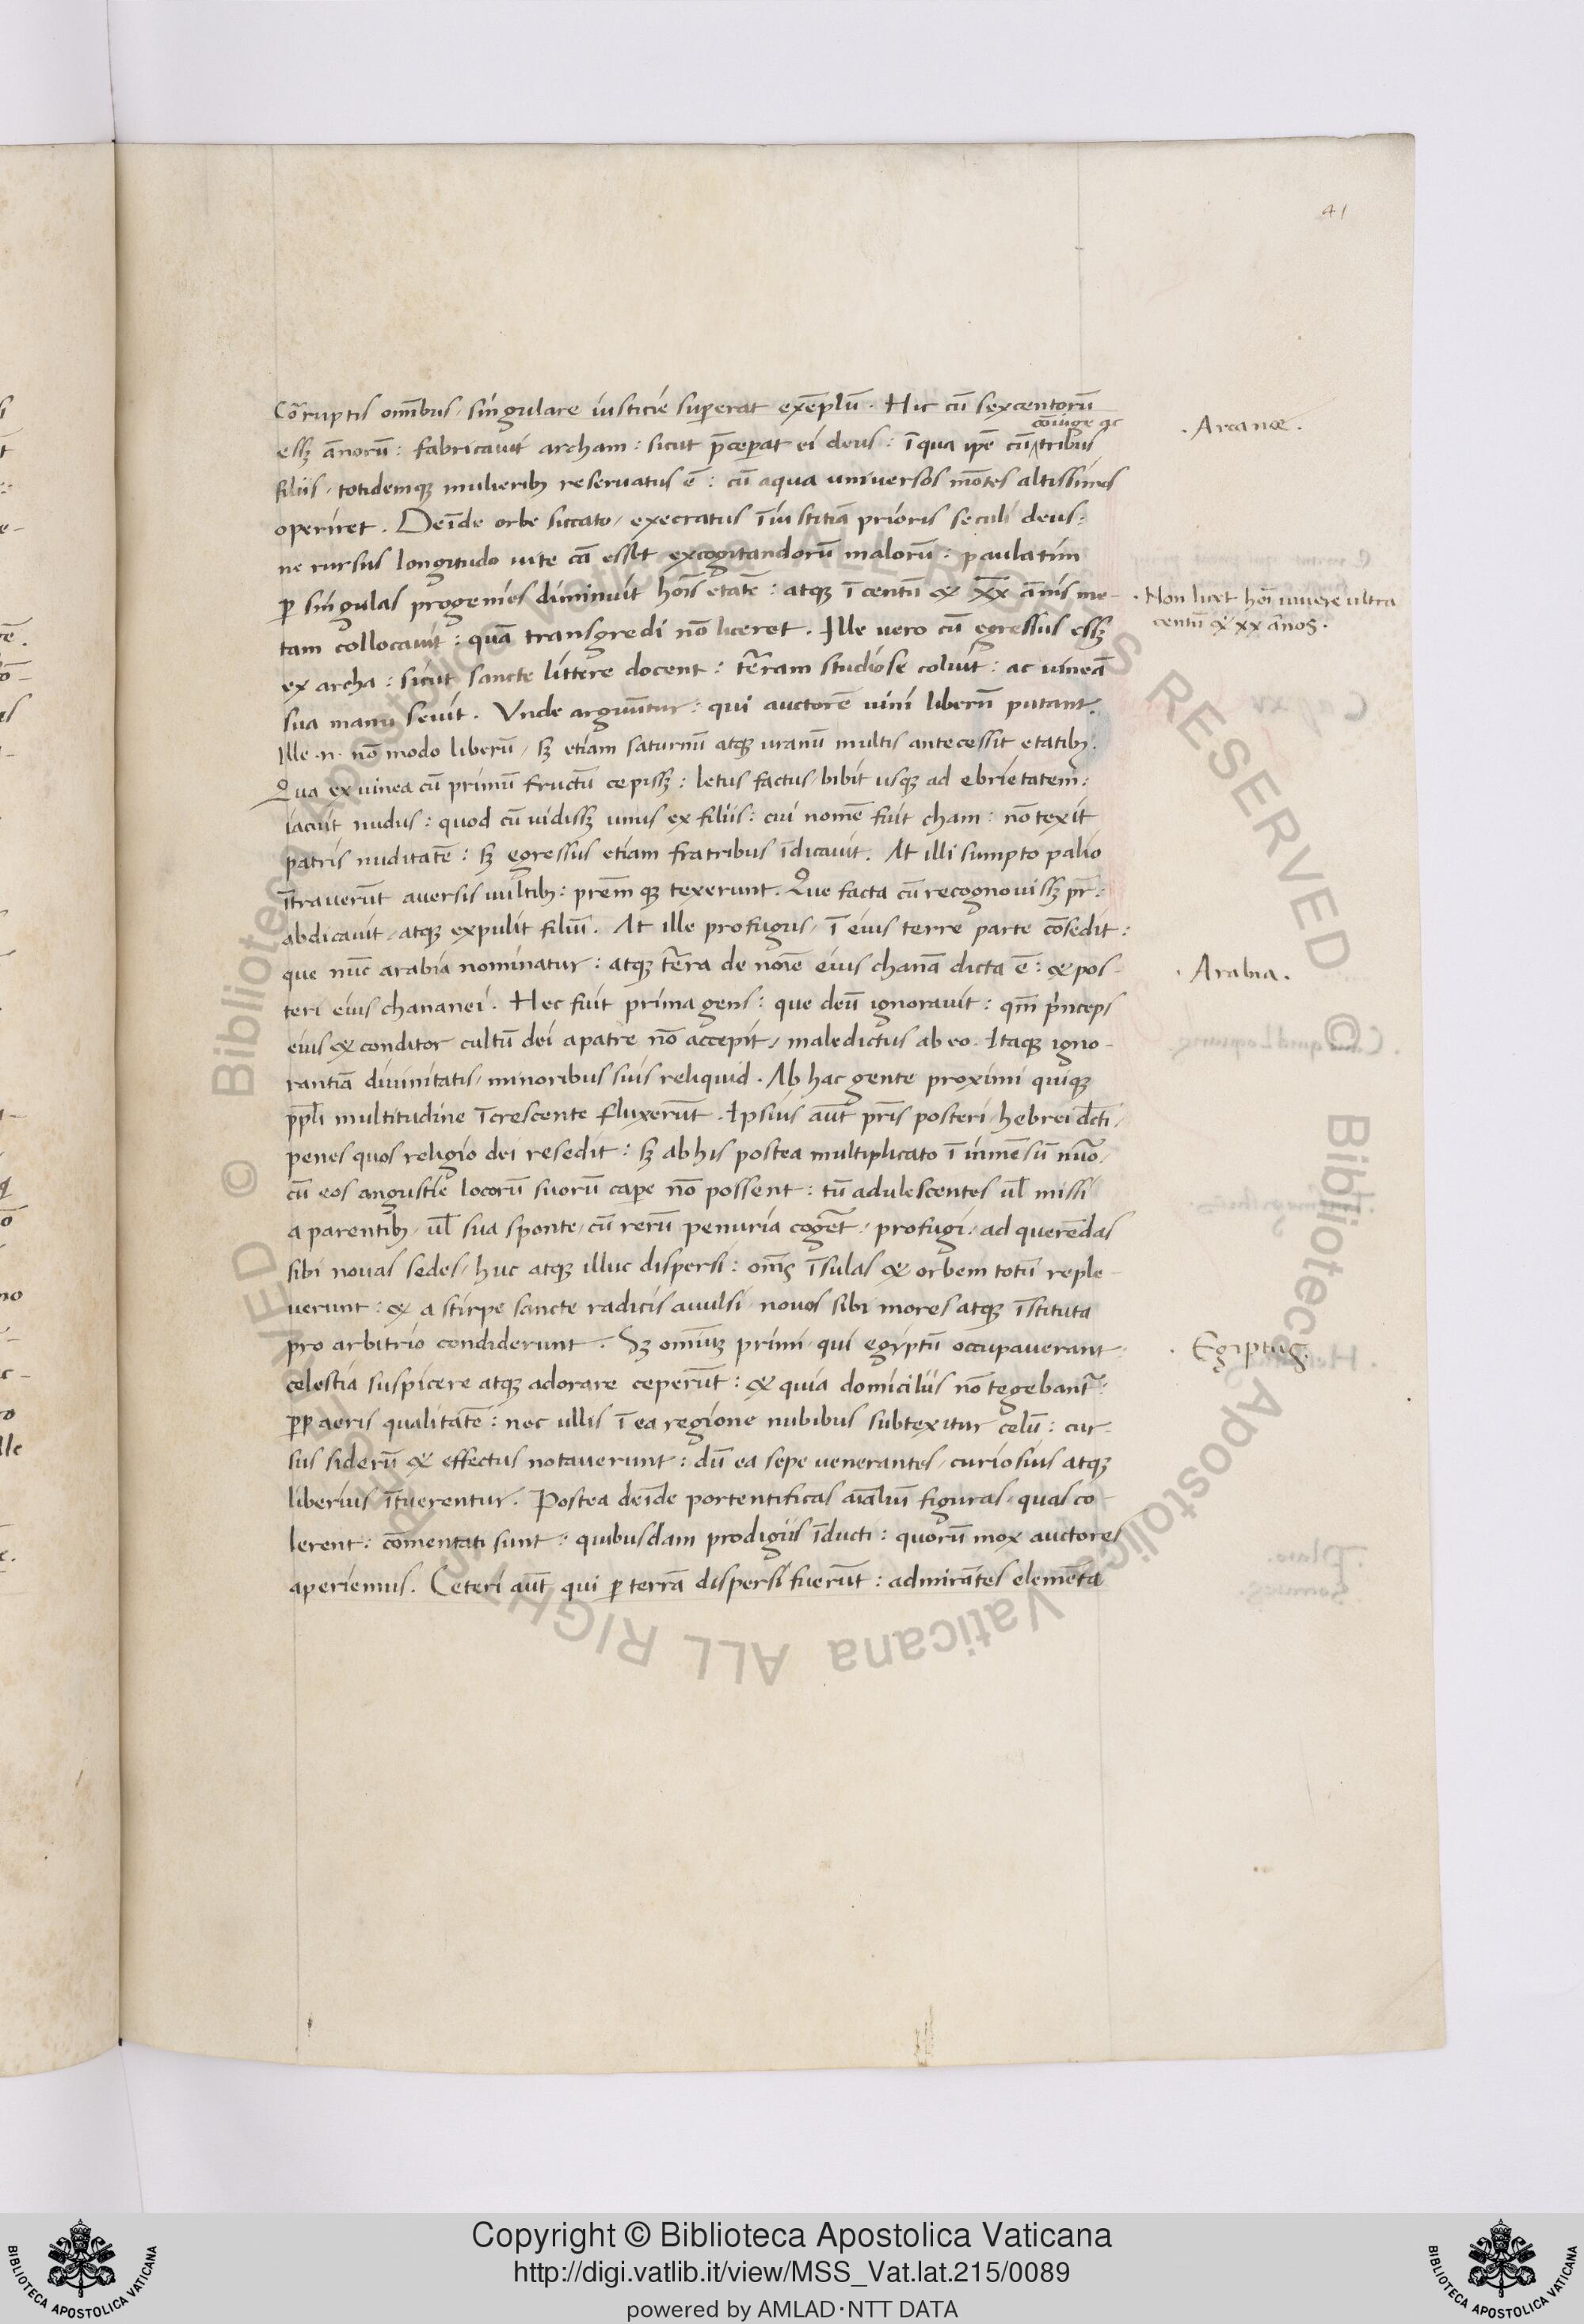 41
Cōruptis om̄ibus, singulare iusticie superat exēplū. Hic cū sexcentorū
cōiuge ac
essꝫ ānorū: fabricavit archam: sicut p̄ceperat ei deus: ī qua ip̄e cū tribus
filiis, totidemqꝫ mulieribꝫ reservatus ē: cū aqua universos mōtes altissimos
operiret. Deīde orbe siccato, execratus īiustitiā prioris seculi deus:
ne rursus longitudo uite cā esset excogitandorū malorū: paulatim
ꝑ singulas progenies diminuit hoīs etatē: atqꝫ ī centū & XX ānis me-
tam collocavit: quā transgredi nō liceret. Ille vero cū egressus essꝫ
ex archa: sicut sancte littere docent: t̄ram studiose coluit: ac vineā
sua manu sevit. Vnde arguūtur: qui auctorē vini liberū putant.
Ille .n. nō modo liberū, sꝫ etiam saturnū atqꝫ uranū multis antecessit etatibꝫ.
Qua ex vinea cū primū fructū cepissꝫ: letus factus, bibit usqꝫ ad ebrietatem:
iacuit nudus: quod cū vidissꝫ unus ex filiis: cui nomē fuit cham: nō texit
patris nuditatē: sꝫ egressus etiam fratribus īdicavit. At illi sumpto palio
ītraverūt aversis vultibꝫ: prēm qꝫ texerunt. Que facta cū recognovissꝫ pr̄:
abdicavit, atqꝫ expulit filiū. At ille profugus, ī eius terre parte cōsedit:
que nūc arabia nominatur: atqꝫ t̄ra de noīe eius chanā dicta ē: & pos-
teri eius chananei. Hec fuit prima gens: que deū ignoravit: qm̄ p̄nceps
eius & conditor cultū dei a patre nō accepit, maledictus ab eo. Itaqꝫ igno-
rantiā divinitatis, minoribus suis reliquid. Ab hac gente proximi quiqꝫ
pp̄li multitudine īcrescente fluxerūt. Ipsius aūt pr̄is posteri, hebrei dc̄ti,
penes quos religio dei resedit: sꝫ ab his postea multiplicato ī inmēsū nūo,
cū eos angustie locorū suorū capere nō possent: tū adulescentes ul̄ missi
a parentibꝫ, ul̄ sua sponte, cū rerū penuria cogēt, profugi, ad querēdas
sibi novas sedes, huc atqꝫ illuc dispersi: om̄s īsulas & orbem totū reple-
verunt: & a stirpe sancte radicis avulsi novos sibi mores atqꝫ īstituta
pro arbitrio condiderunt. Sꝫ omiūꝫ primi, qui egyptū occupaverant:
celestia suspicere atqꝫ adorare ceperūt: & quia domiciliis nō tegebant̄:
ꝓꝑ aeris qualitatē: nec ullis ī ea regione nubibus subtexitur celū: cur-
sus siderū & effectus notaverunt: dū ea sepe venerantes, curiosius atqꝫ
liberius ītuerentur. Postea deīde portentificas aīaliū figuras, quas co-
lerent: cōmentati sunt: quibusdam prodigiis īducti: quorū mox auctores
aperiemus. Ceteri aūt qui ꝑ terrā dispersi fuerūt: admirātes elemēta
. Arcanæ.
. Non licet hoī vivere ultra
centū & xx ānos.
. Arabia.
. Egiptus.
Copyright © Biblioteca Apostolica Vaticana
http://digi.vatlib.it/view/MSS_Vat.lat.215/0089
powered by AMLAD·NTT DATA
BIBLIOTECA APOSTOLICA VATICANA
BIBLIOTECA APOSTOLICA VATICANA